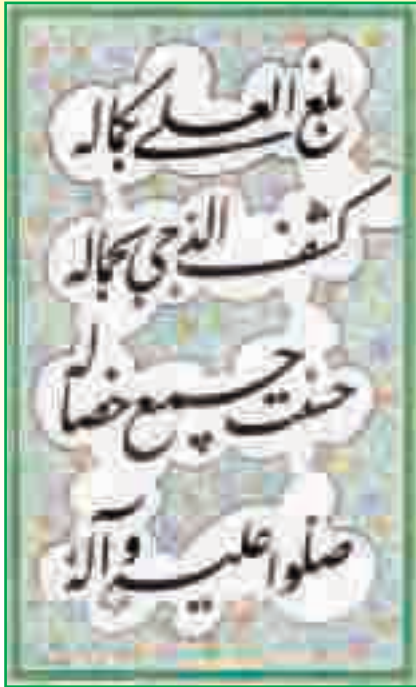 بلغ العلے بکمالہ
کشف الدجیٰ بجمالہ
حسنت جمیع خصالہ
صلوا علیہ و آلہ